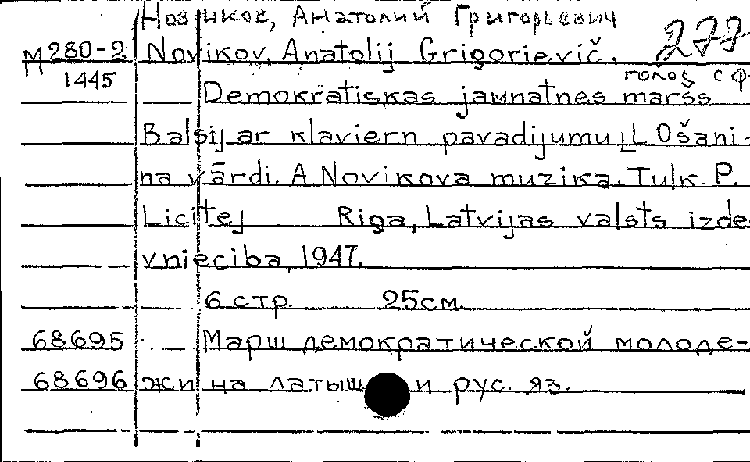 Новиков, Анатолий Григорьевич
М280-2 Novikov, Anatolij Grigorjevič. 277
1445 голос с ф
Demokrātiskas jaunatnes maršs
Balsij ar klavieru pavadijumu L Ošani-
na vārdi. A Novikova muzika. Tulk. P.
Licitej Riga, Latvijas valsts izde
vnieciba, 1947.
6 стр. 25см.
68695 Марш демократической молоде-
68696 жи на латыш и рус. яз.